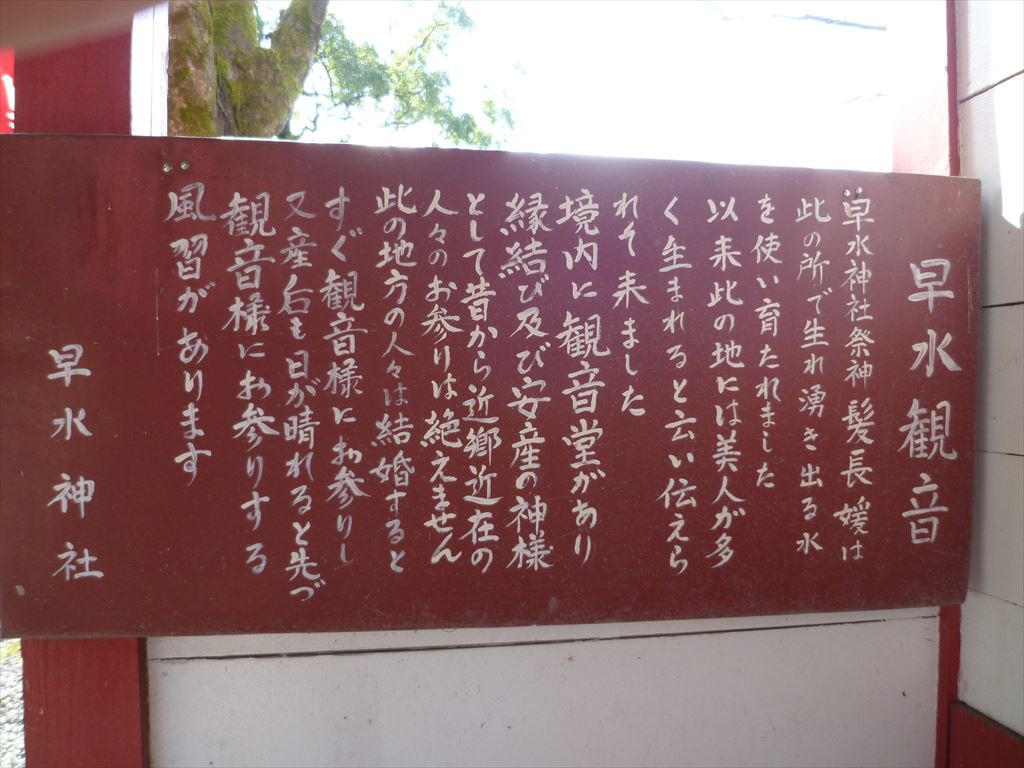 早水観音
早水神社祭神髪長媛は
此の所で生れ湧き出る水
を使い育たれました
以来此の地には美人が多
く生まれると云い伝えら
れて来ました
境内に観音堂があり
縁結び及び安産の神様
として昔から近郷近在の
人々のお参りは絶えません
此の地方の人々は結婚すると
すぐ観音様にお参りし
又産后も日が晴れると先づ
観音様にお参りする
風習があります
早水神社